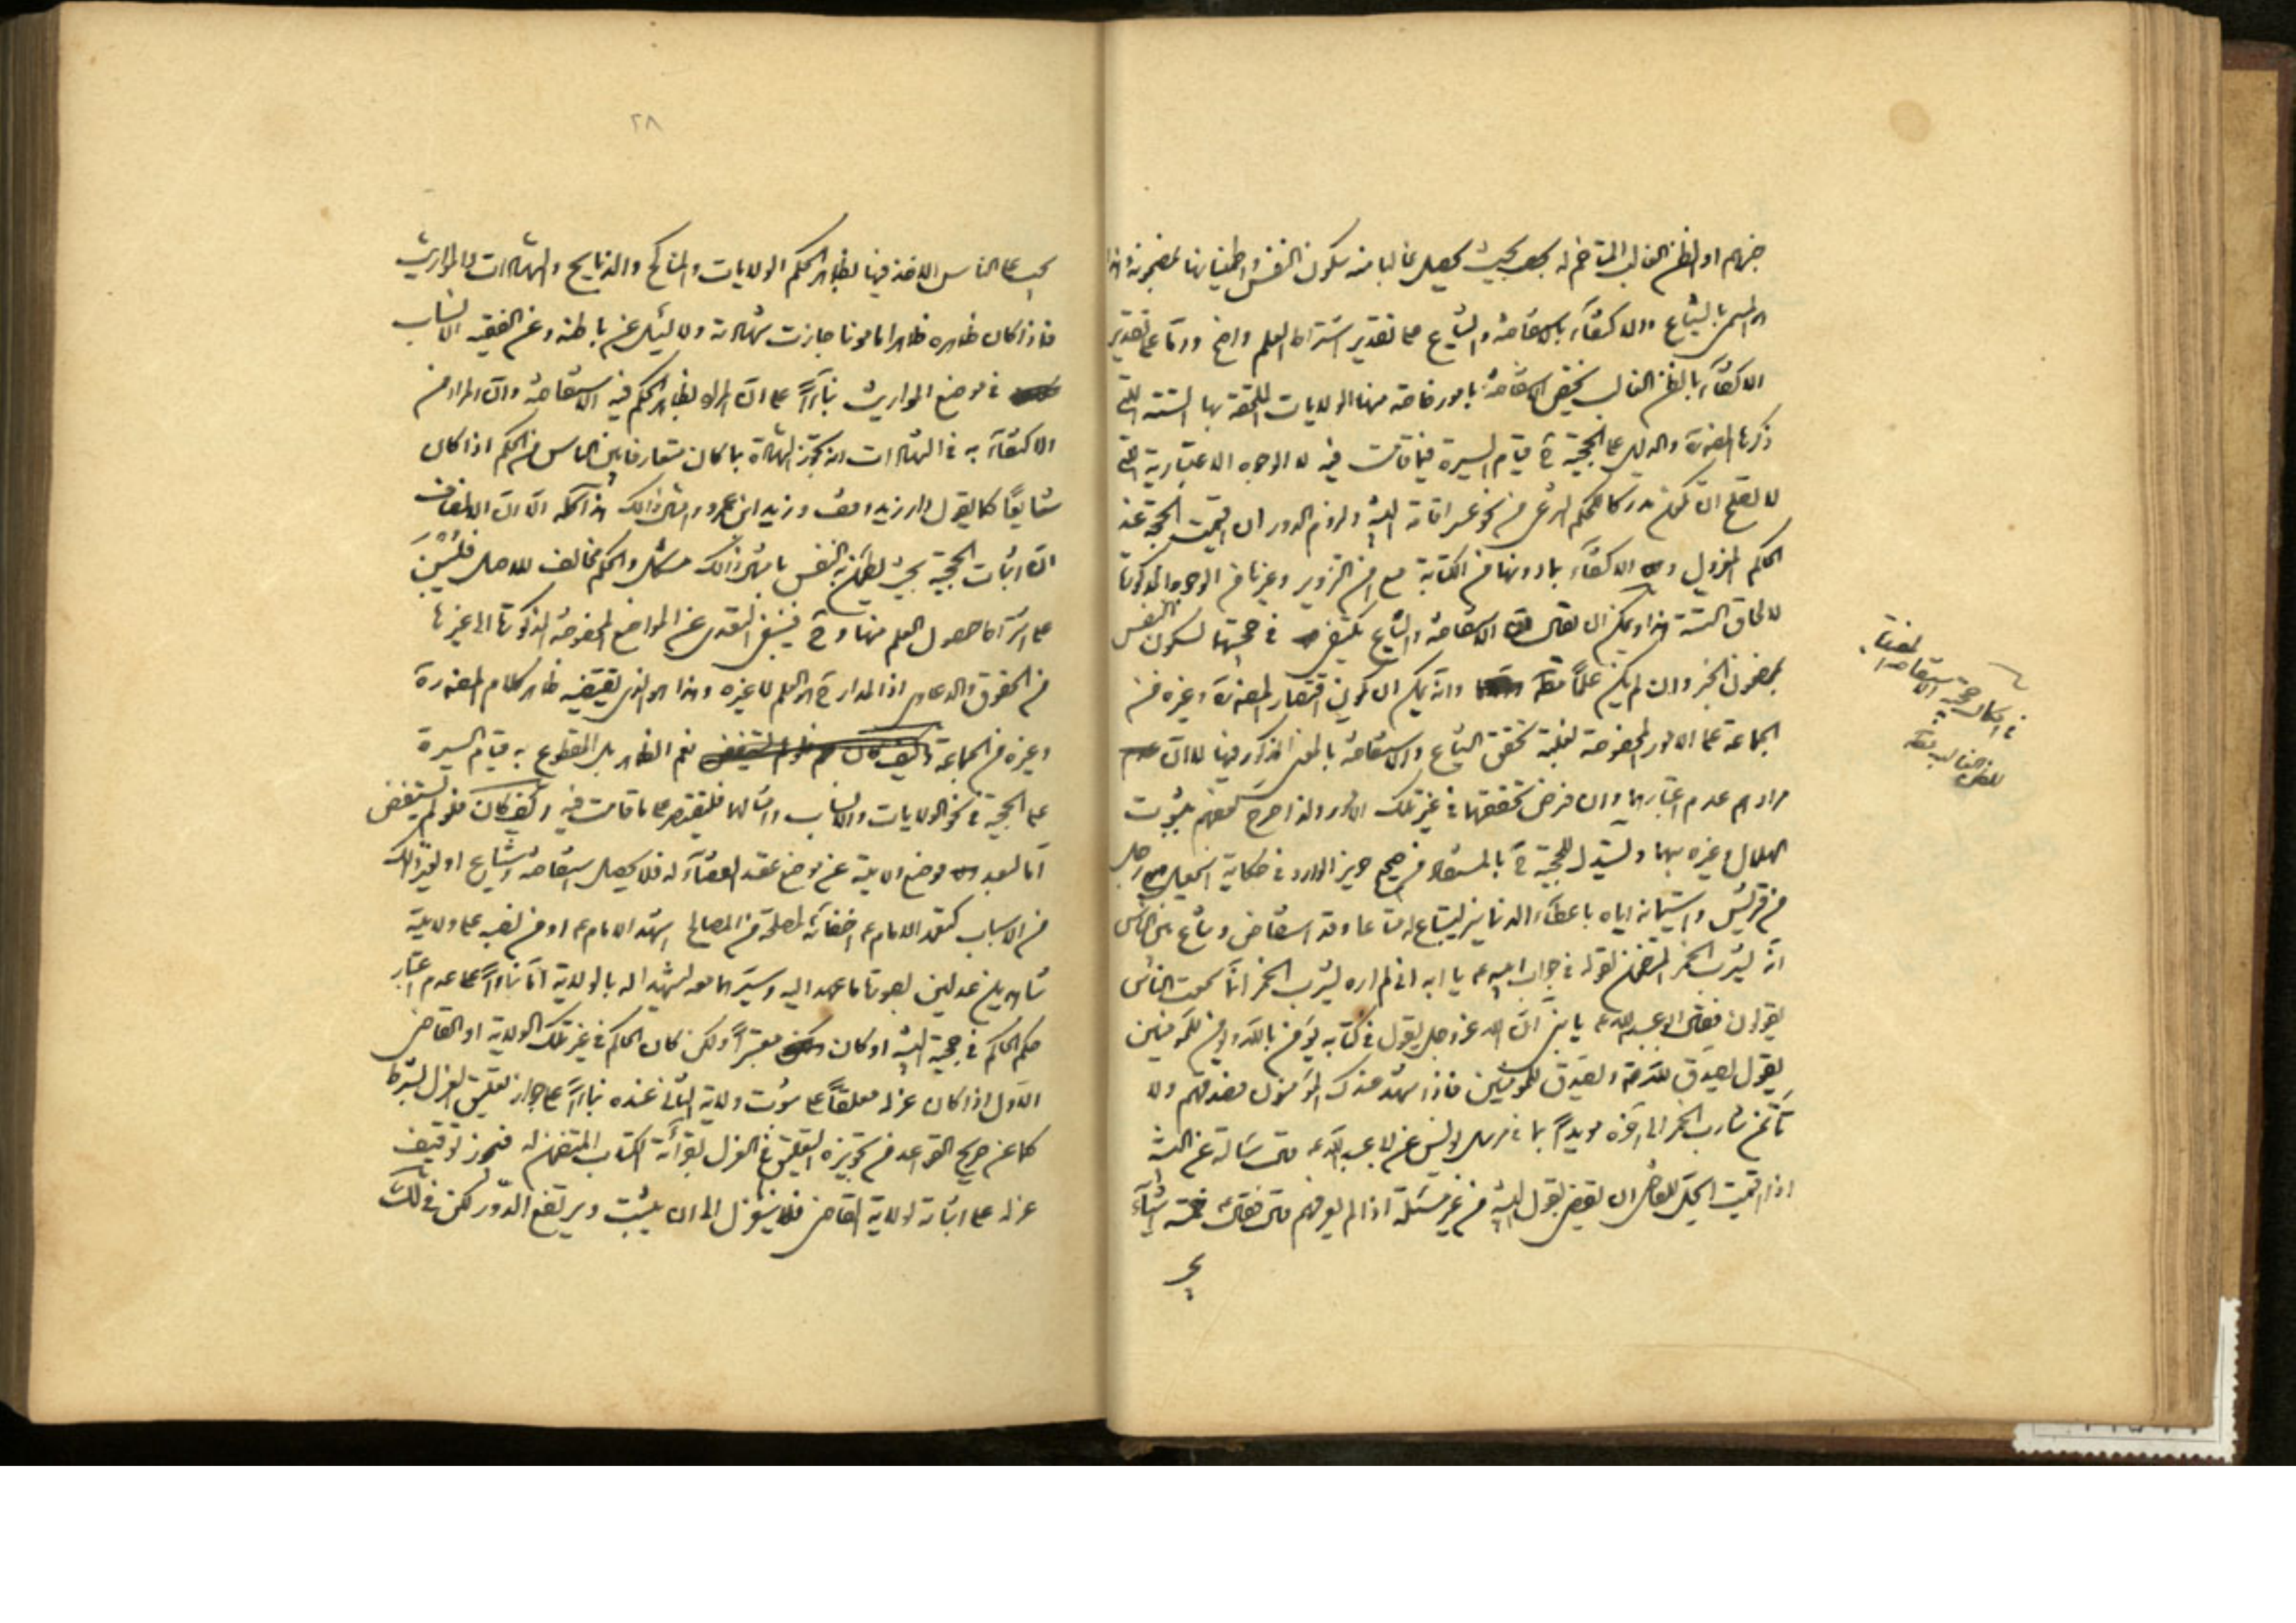 خبرهم او الظن الغالب المتاخم له بحيث يحصل غالبا منه سكون النفس واطمينانها بمضمونه وهذا
هو المسمى بالشياع والاكتفاء بالاستفاضة والشياع على تقدير اشتراط العلم واضح واما على تقدير
الاكتفاء بالظن الغالب يختص الاستفاضة بامور خاصة منها الولايات الملحقة بها الستة التي
ذكرها المصنف والدليل على الحجية ح قيام السيرة فيما قامت فيه لا الوجوه الاعتبارية التي
لا تصلح ان تكون مدركا للحكم الشرعي من نحو عسر اقامة البينة ولزوم الدور ان اقيمت الحجة عند
الحاكم المعزول و الاكتفاء بما دونها من الكتابة مع امن التزوير وغيرها من الوجوه المذكورة
لالحاق الستة هذا ويمكن ان يقال ان الاستفاضة والشياع يكتفى في حجيتها لسكون النفس
بمضمون الخبر وان لم يكن علما وانه يمكن ان يكون اقتصار المصنف وغيره من
الجماعة على الامور المخصوصة لغلبة تحقق الشياع والاستفاضة بالمعنى المذكور فيها لا ان
مرادهم عدم اعتبارها وان فرض تحققها في غير تلك الامور ولذا صرح بعضهم بثبوت
الهلال وغيره بهما ويستدل للحجية ح بالمستفاد من صحيح حريز الوارد في حكاية اسمعيل مع رجل
من قريش واستيمانه اياه باعطاء الدنانير ليبتاع له متاعا وقد استفاض وشاع بين الناس
انه يشرب الخمر المتضمن لقوله في جواب ابيه ع يا ابه اني لم اره يشرب الخمر انما سمعت الناس
يقولون فقال ابو عبد الله ع يا بني ان الله عز وجل يقول في كتابه يؤمن بالله ويؤمن للمؤمنين
يقول يصدق لله ويصدق للمؤمنين فاذا شهد عندك المؤمنون فصدقهم ولا
تأتمن شارب الخمر الى آخره مويدا بما في مرسل يونس عن ابي عبد الله ع قال سالته عن البينة
اذا اقيمت ايحل للقاضي ان يقضي بقول البينة من غير مسئلة اذا لم يعرفهم قال فقال خمسة اشياء
يجب
في امكان حجية الاستفاضة المفيدة
للظن الغالب
٢٨
يجب على الناس الاخذ فيها بظاهر الحكم الولايات والمناكح والذبايح والشهادات والمواريث
فاذا كان ظاهره ظاهرا مامونا جازت شهادته ولا يسئل عن باطنه وعن الفقيه الانساب
في موضع المواريث بناء على ان المراد بظاهر الحكم فيه الاستفاضة وان المراد من
الاكتفاء به في الشهادات انه يجوز الشهادة بما كان متعارفا بين الناس من الحكم اذا كان
شايعا كما يقول دار زيد وقف وزيد ابن عمرو وامثال ذلك هذا كله الا ان الانصاف
ان اثبات الحجية بحيث يطمئن به النفس بامثال ذلك مشكل والحكم مخالف للاصل فليبن
على اشتراط حصول العلم منها وح فينبغي التعدي عن المواضع المخصوصة المذكورة الى غيرها
من الحقوق والدعاوى اذ المدار ح هو العلم لا غيره وهذا هو الذي يقتضيه ظاهر كلام المصنف
وغيره من الجماعة نعم الظاهر بل المقطوع به قيام السيرة
على الحجية في نحو الولايات والانساب وامثالها فليقتصر على ما قامت فيه وكيف كان فلو لم يستفض
اما لبعد موضع الولاية عن موضع عقد القضاء له فلا يحصل استفاضة وشياع او لغير ذلك
من الاسباب كتعمد الامام ع اخفائه لمصلحة من المصالح اشهد الامام ع او من نصبه على ولايته
شاهدين عدلين بصورة ما عهد اليه وسيرهما معه ليشهدا له بالولاية اما بناء على عدم اعتبار
حكم الحاكم في حجية البينة او كان معتبرا ولكن كان الحاكم في غير تلك الولاية او القاضي
الاول اذا كان عزله معلقا على ثبوت ولاية الثاني عنده بناء على جواز تعليق العزل بشرط
كما عن صريح القواعد من تجويزه التعليق في العزل بقرائة الكتاب المتضمن له فيجوز توقيف
عزله على اثباته لولاية القاضي فلا ينعزل الى ان يثبت ويرتفع الدور لكن في ذلك